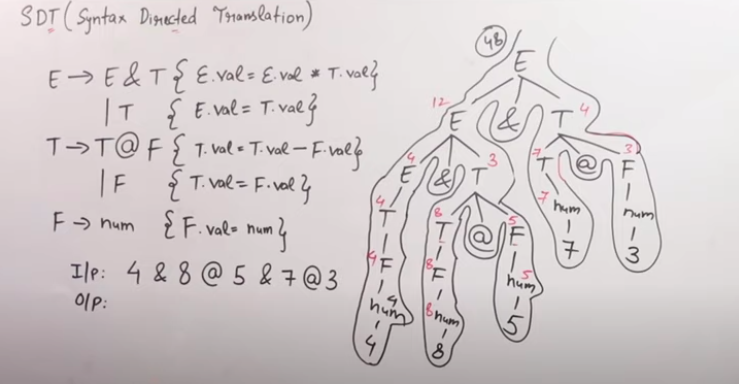 SDT (Syntax Directed Translation)
E → E & T { E.val = E.val * T.val}
| T { E.val = T.val}
T → T @ F { T.val = T.val - F.val}
| F { T.val = F.val}
F → num { F.val = num}
I/p: 4 & 8 @ 5 & 7 @ 3
O/p:
48
E
12 4
E & T
4 3 7 3
E & T T @ F
4 8 5 7
T T @ F num num
4 8 5
F F num 7 3
4 8
num num 5
4 8